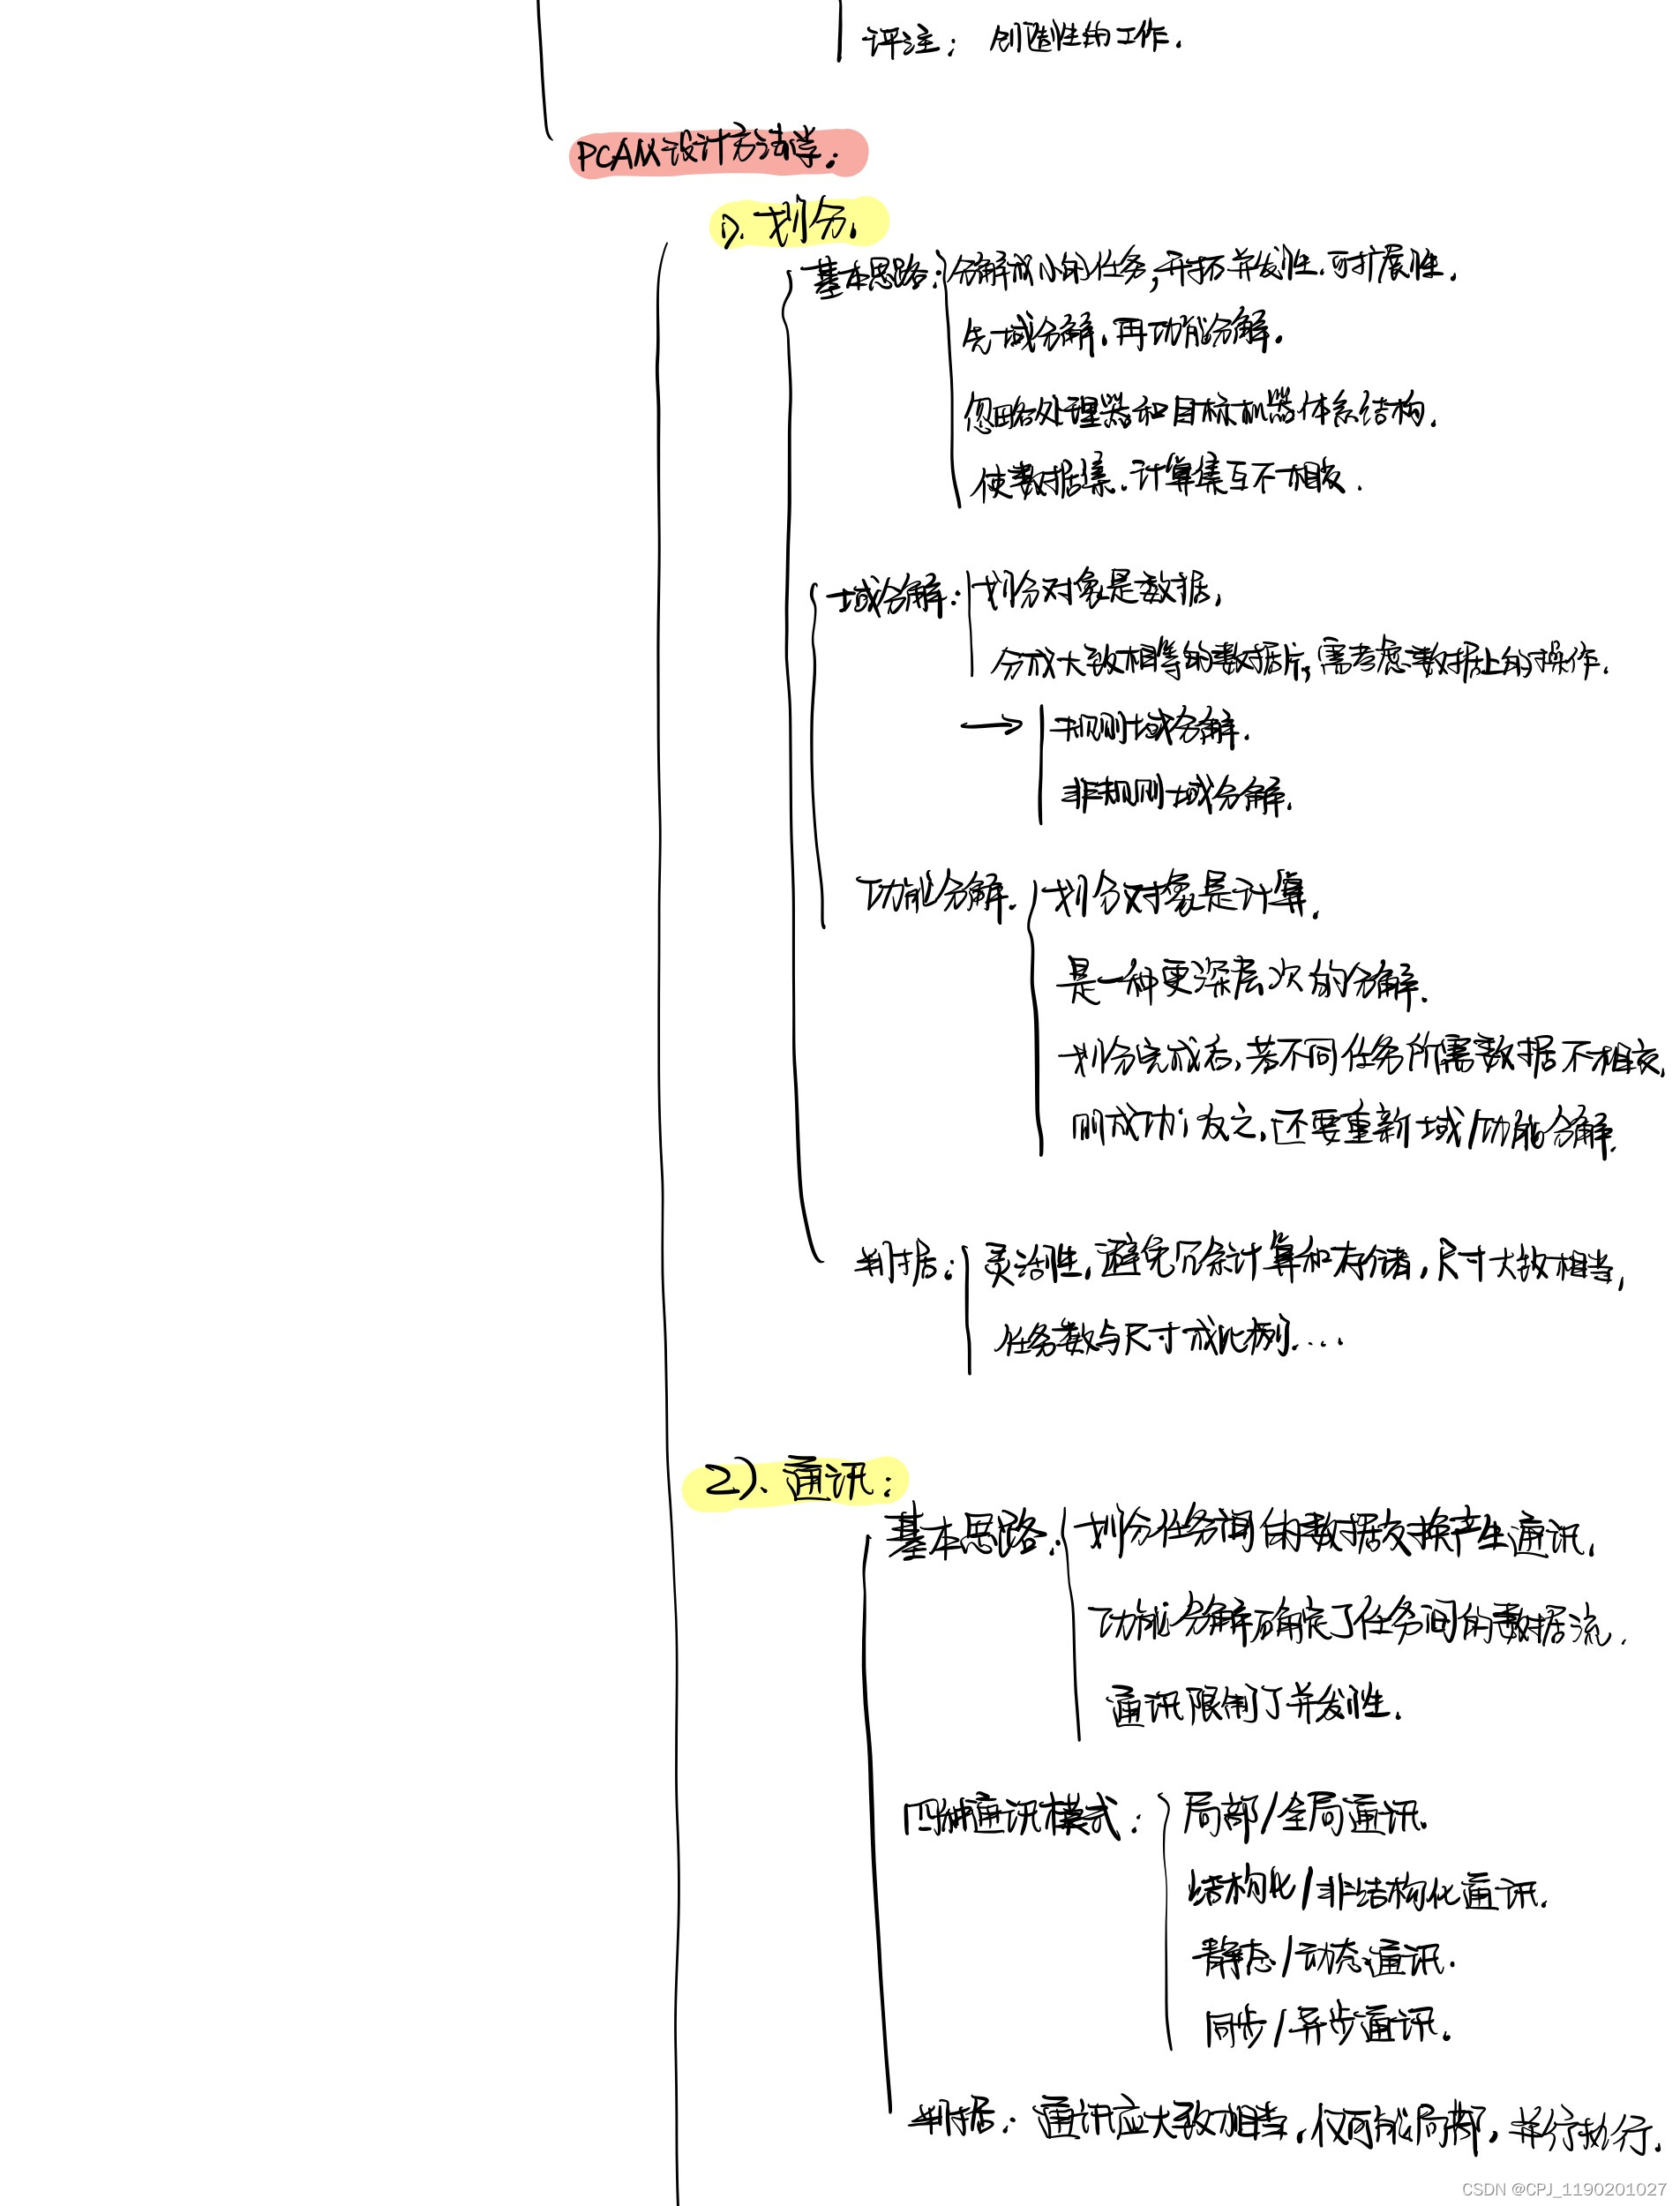 评注: 创造性的工作.
PCAM设计方法学:
1). 划分.
基本思路: 分解成小的任务,开拓并发性.可扩展性.
先域分解.再功能分解.
忽略处理器和目标机器体系结构.
使数据集.计算集互不相交.
域分解: 划分对象是数据,
分成大致相等的数据片,需考虑数据上的操作.
→ 规则域分解.
非规则域分解.
功能分解. 划分对象是计算.
是一种更深层次的分解.
划分完成后,若不同任务所需数据不相交,
则成功;反之,还要重新域/功能分解.
判据: 灵活性,避免冗余计算和存储,尺寸大致相当,
任务数与尺寸成比例....
2). 通讯:
基本思路: 划分任务间的数据交换产生通讯.
功能分解确定了任务间的数据流.
通讯限制了并发性.
四种通讯模式: 局部/全局通讯.
结构化/非结构化通讯.
静态/动态通讯.
同步/异步通讯.
判据: 通讯应大致相当,仅可能局部,并行执行.
CSDN @CPJ_1190201027